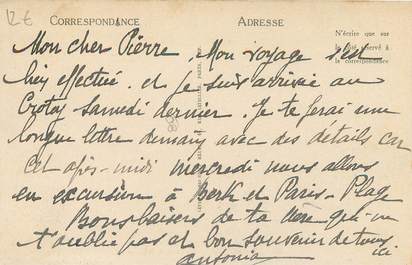 12 €
CORRESPONDANCE
ADRESSE
N'écrire que sur
le côté réservé à
la correspondance
Mon cher Pierre, Mon voyage s'est
bien effectué et je suis arrivée au
Crotoy samedi dernier. Je te ferai une
longue lettre demain avec des détails car
cet après-midi mercredi nous allons
en excursion à Berk et Paris-Plage
Bons baisers de ta qui ne
t'oublie pas et bon souvenir de tous
ici
Antonia